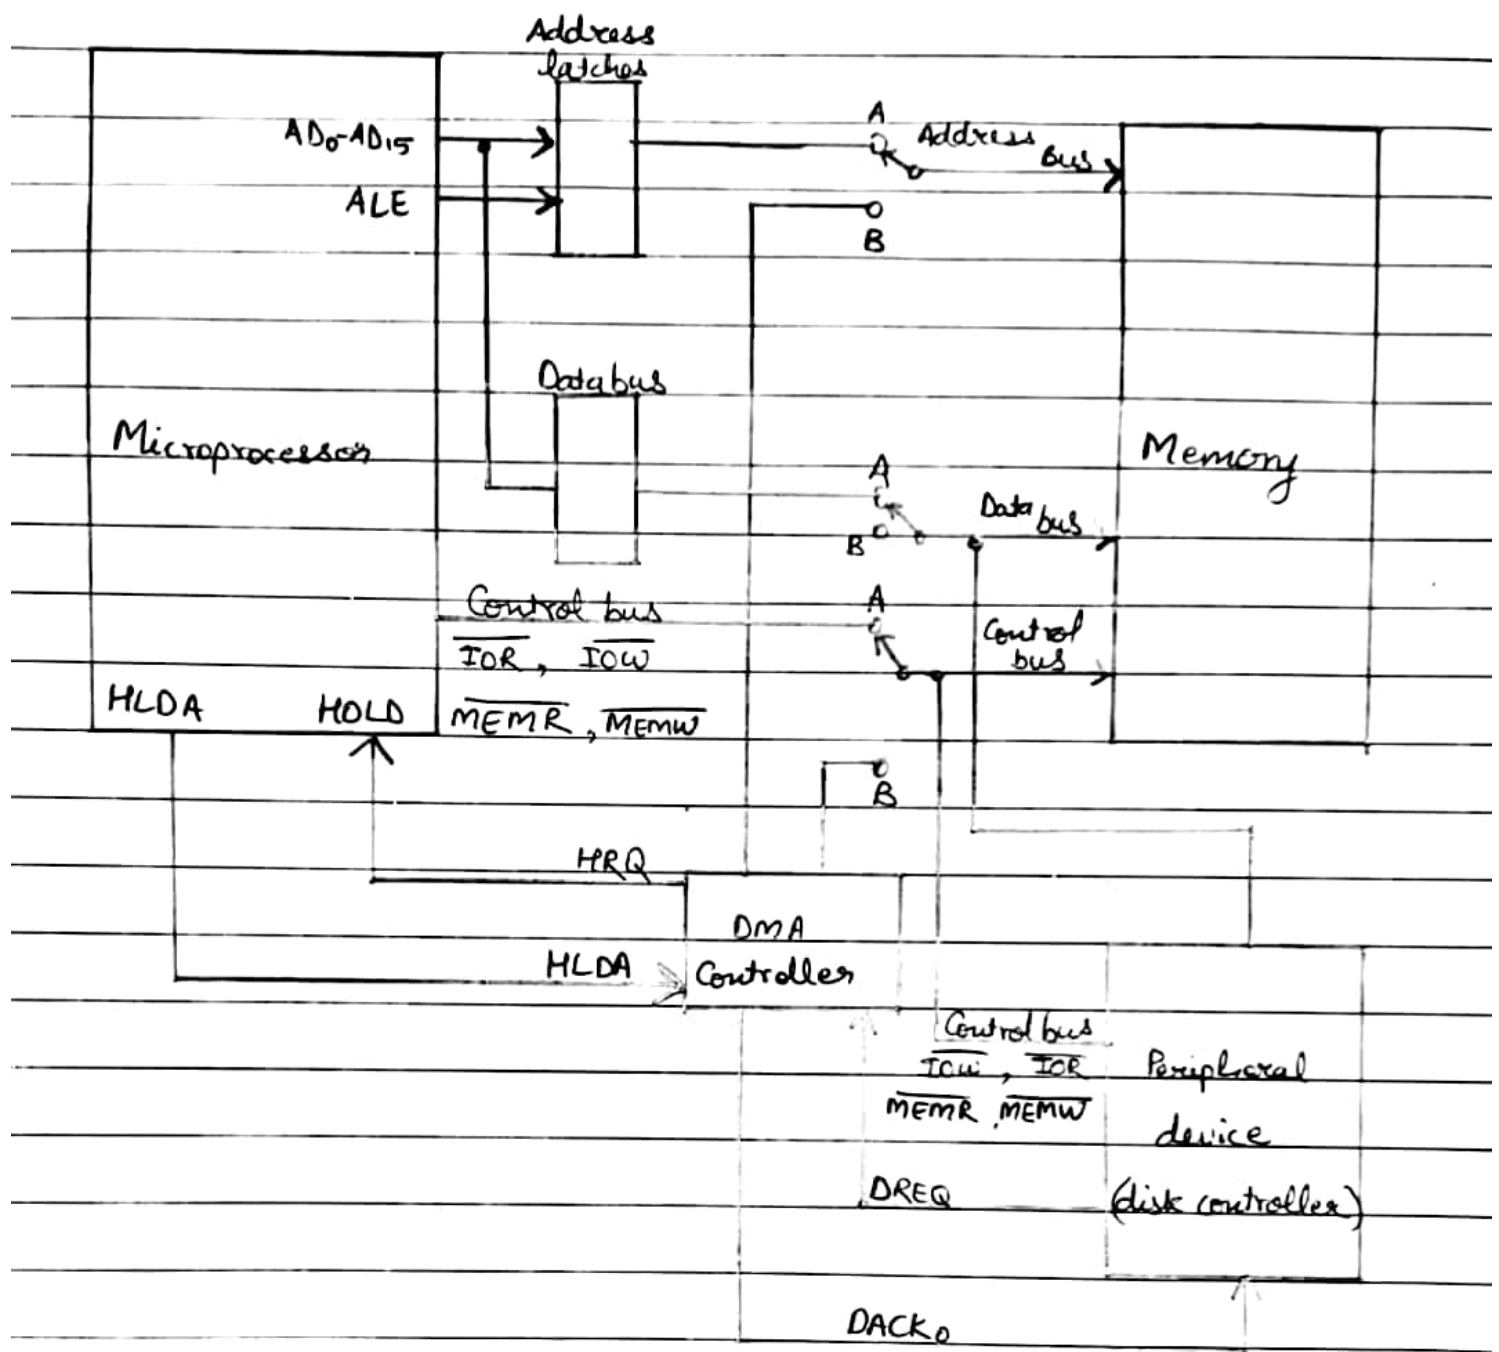 Address
latches
AD₀-AD₁₅
ALE
A
Address
Bus
B
Databus
Microprocessor
Memory
A
B
Data
bus
Control bus
A
Control
bus
I̅O̅R̅, I̅O̅W̅
M̅E̅M̅R̅, M̅E̅M̅W̅
HLDA HOLD
B
HRQ
DMA
Controller
HLDA
Control bus
I̅O̅W̅, I̅O̅R̅
M̅E̅M̅R̅, M̅E̅M̅W̅
Peripheral
device
(disk controller)
DREQ
DACK₀